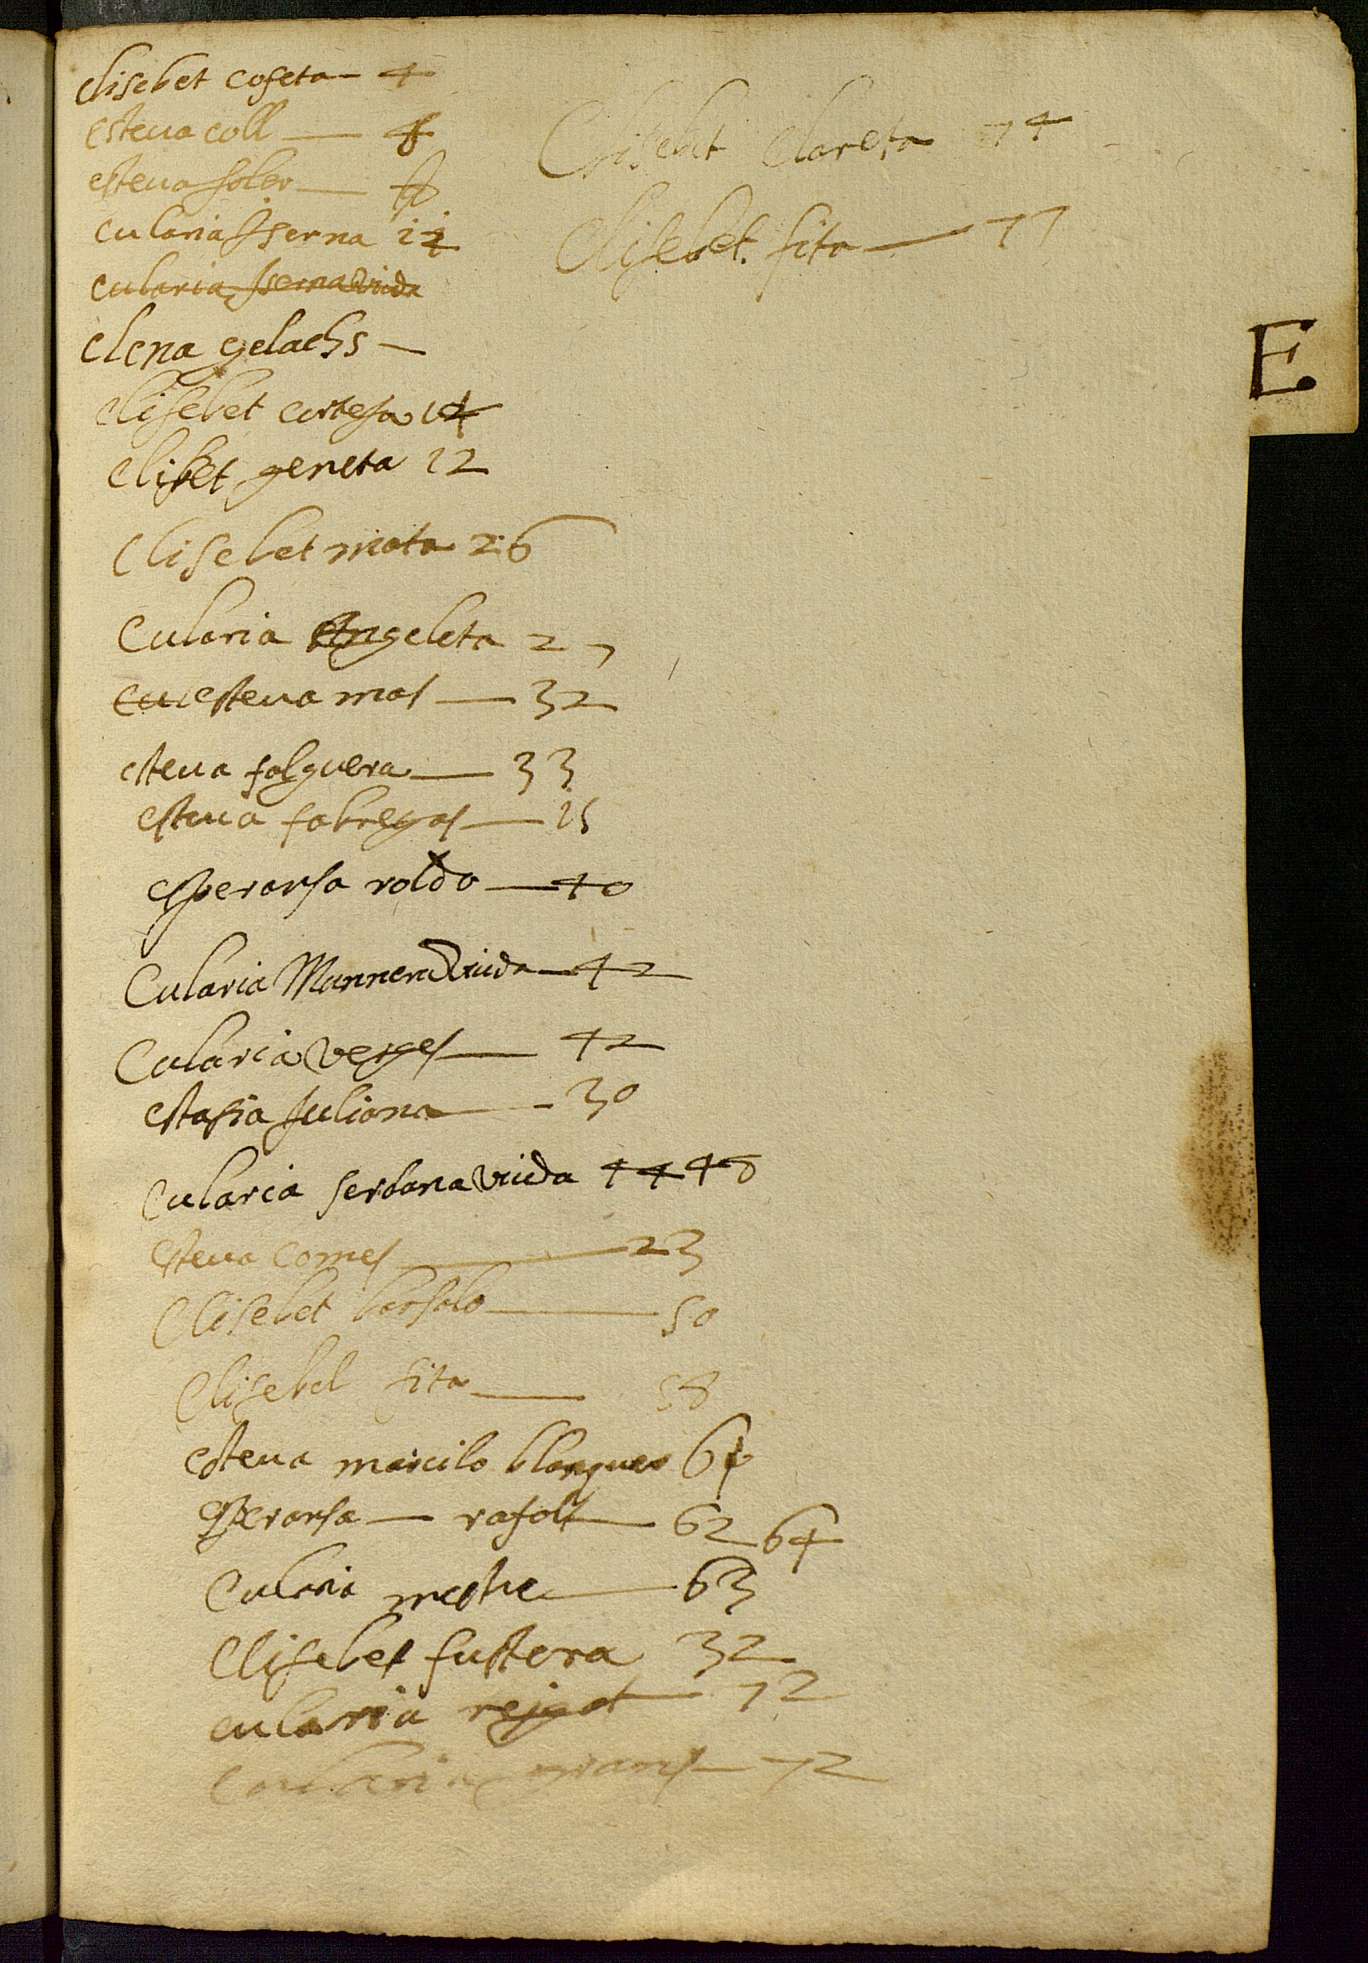 elisebet coseta — 4
esteva coll — 4
esteva soler —
eularia Iserna 12
eularia Iserna viuda
elena gelachs —
elisebet cortesa 14
elisbet geneta 12
elisebet mata 26
Eularia Angeleta 27
eul esteva mas — 32
esteva falguera — 33
esteva fabregas — 25
esperansa rolda — 40
Eularia Mannera viuda — 42
Eularia verges — 42
estasia Juliana — 30
Eularia serdana viuda 44 48
esteva comes — 23
Elisebet barsalo — 50
Elisebet fita — 58
esteva marcilo blanquer 64
esperansa — rafols — 62 64
Eularia mestre — 63
Elisebet fustera 32
eularia rejgat — 72
Eularia grams — 72
Elisebet clareta 74
Elisebet fita — 77
E